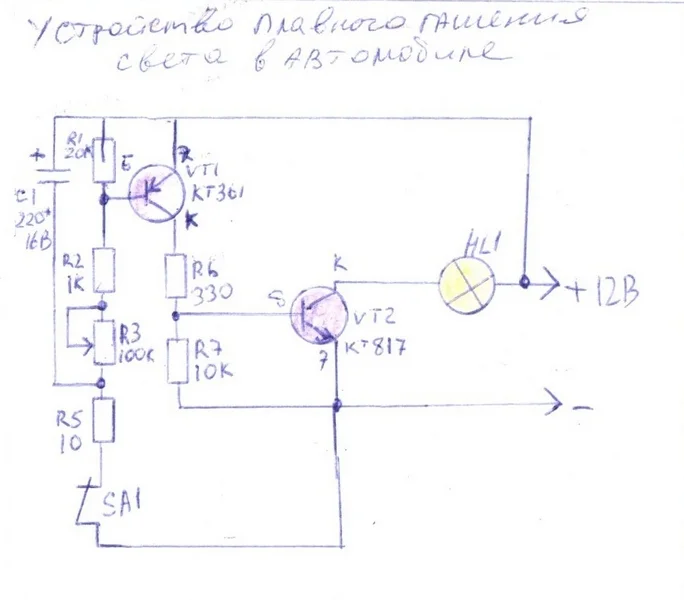 Устройство плавного гашения
света в автомобиле
R1
20К
Б
Э
VT1
КТ361
+
C1
220*
16В
К
R2
1К
R6
330
HL1
К
+12В
Б
VT2
КТ817
Э
R3
100К
R7
10К
−
R5
10
SA1